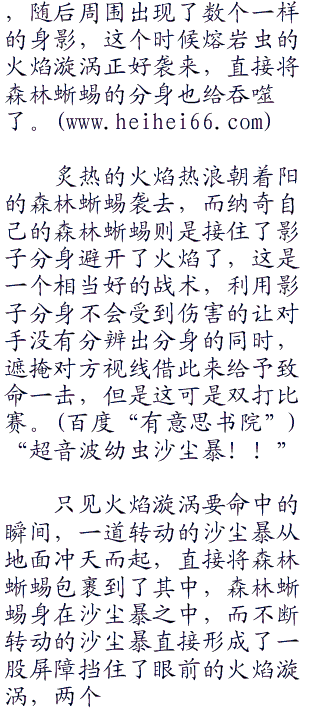 ，随后周围出现了数个一样
的身影，这个时候熔岩虫的
火焰漩涡正好袭来，直接将
森林蜥蜴的分身也给吞噬
了。(www.heihei66.com)
炙热的火焰热浪朝着阳
的森林蜥蜴袭去，而纳奇自
己的森林蜥蜴则是接住了影
子分身避开了火焰了，这是
一个相当好的战术，利用影
子分身不会受到伤害的让对
手没有分辨出分身的同时，
遮掩对方视线借此来给予致
命一击，但是这可是双打比
赛。(百度“有意思书院”)
“超音波幼虫沙尘暴！！”
只见火焰漩涡要命中的
瞬间，一道转动的沙尘暴从
地面冲天而起，直接将森林
蜥蜴包裹到了其中，森林蜥
蜴身在沙尘暴之中，而不断
转动的沙尘暴直接形成了一
股屏障挡住了眼前的火焰漩
涡，两个